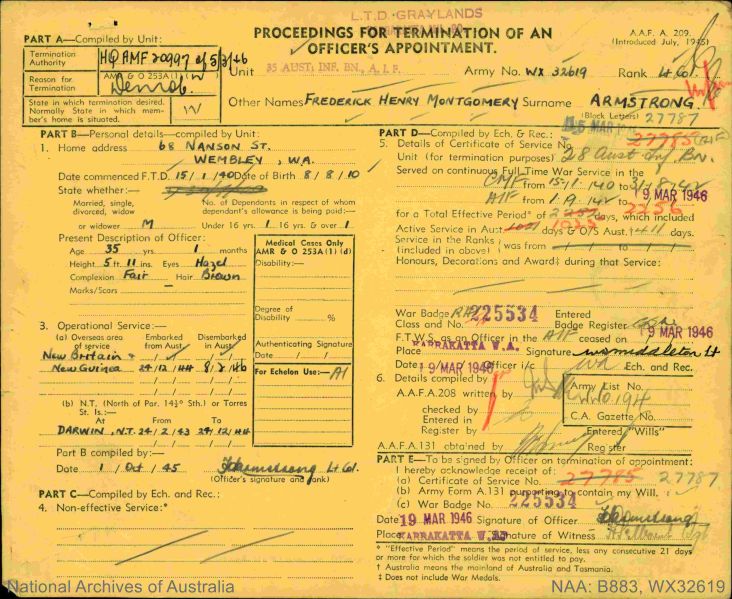 L.T.D. GRAYLANDS
PART A—Compiled by Unit:
Termination Authority HQ AMF 20997 of 5/3/46
AMR & O 253A(1)
Reason for Termination Demob.
State in which termination desired. Normally State in which member's home is situated. W
PROCEEDINGS FOR TERMINATION OF AN
OFFICER'S APPOINTMENT.
A.A.F. A. 209.
(Introduced July, 1945)
Unit 35 AUST. INF. BN., A.I.F. Army No. WX 32619 Rank Lt Col.
Other Names FREDERICK HENRY MONTGOMERY Surname ARMSTRONG.
(Block Letters) 27787
PART B—Personal details—compiled by Unit:
1. Home address 68 NANSON ST.
WEMBLEY, WA.
Date commenced F.T.D. 15/1/40 Date of Birth 8/8/10
State whether:—
Married, single, divorced, widow or widower M
No. of Dependants in respect of whom dependant's allowance is being paid:—
Under 16 yrs. 1 16 yrs. & over 1
Present Description of Officer:
Age 35 years 1 months
Height 5 ft 11 ins. Eyes Hazel
Complexion Fair Hair Brown
Marks/Scars —
Medical Cases Only
AMR & O 253A(1)(d)
Disability:—
Degree of Disability %
Authenticating Signature
Date / /
For Echelon Use:— A1
3. Operational Service:—
(a) Overseas area of service Embarked from Aust. Disembarked in Aust.
New Britain &
New Guinea 24/12/44 8/2/46
(b) N.T. (North of Par. 14½° Sth.) or Torres St. Is.:—
At From To
DARWIN, N.T. 24/2/43 24/12/44
Part B compiled by:
Date 1/Oct/45 FHArmstrong Lt Col.
(Officer's signature and rank)
PART C—Compiled by Ech. and Rec.:
4. Non-effective Service:*
PART D—Compiled by Ech. & Rec.:
5. Details of Certificate of Service No. 27785 (AIF)
Unit (for termination purposes) 28 Aust Inf Bn.
Served on continuous Full Time War Service in the
CMF from 15/1/40 to 31/8/42
AIF from 1/9/42 to 19 MAR 1946
for a Total Effective Period* of 2256 days, which included
Active Service in Aust† days & O/S Aust. 411 days.
Service in the Ranks (included above) was from / / to / /
Honours, Decorations and Award‡ during that Service:
War Badge Class and No. 225534 Entered Badge Register
F.T.W.S. as an Officer in the AIF ceased on 19 MAR 1946
Place KARRAKATTA W.A. Signature WSMiddleton Lt
Date 19 MAR 1946 Officer i/c WA Ech. and Rec.
6. Details compiled by
A.A.F.A.208 written by
checked by
Entered in Register by
Army List No.
C.A. Gazette No.
A.A.F.A.131 obtained by
Entered "Wills" Register
PART E—To be signed by Officer on termination of appointment:
I hereby acknowledge receipt of:
(a) Certificate of Service No. 27785 27787
(b) Army Form A.131 purporting to contain my Will.
(c) War Badge No. 225534
Date 19 MAR 1946 Signature of Officer FHArmstrong
Place KARRAKATTA W.A. Signature of Witness
* "Effective Period" means the period of service, less any consecutive 21 days or more for which the soldier was not entitled to pay.
† Australia means mainland of Australia and Tasmania.
‡ Does not include War Medals.
National Archives of Australia
NAA: B883, WX32619